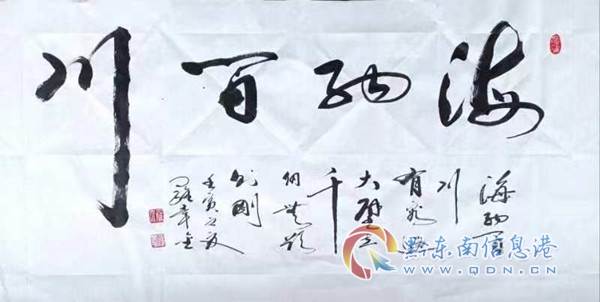 海纳百川
海纳百
川
有容乃
大壁立
千
仞無欲
则剛
壬寅之秋
羅章
黔东南信息港
WWW.QDN.CN